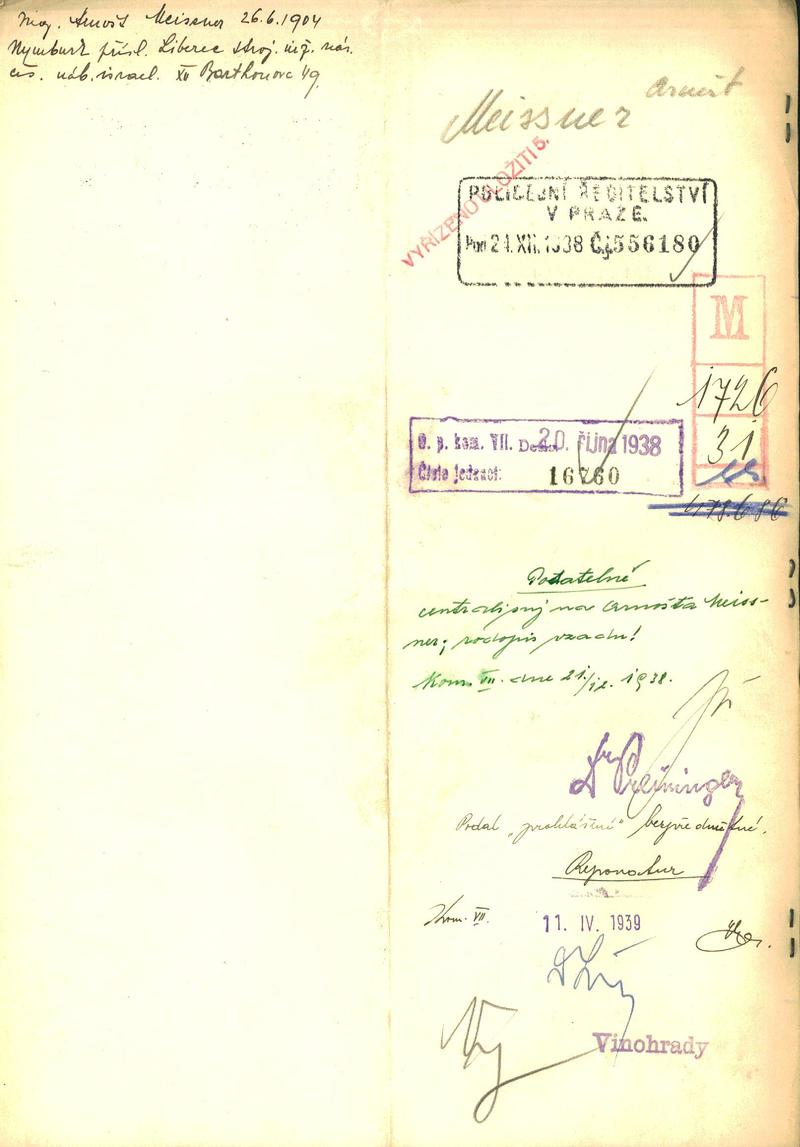 Ing. Arnošt Meissner 26.6.1904
Nymburk přísl. Liberec stroj. inž. nár.
čes. náb. israel. XII Barthonova 49
Arnošt
Meissner
VYŘÍZENO ULOŽITI 5.
POLICEJNÍ ŘEDITELSTVÍ
V PRAZE.
24. XII. 1938 Čj. 556180
M
1726
31
O. p. kom. VII. Došlo 20. října 1938
Číslo jednací: 16760
Podatelně
na Arnošta Meiss-
ner; rodopis vzadu!
Kom. VII. dne 21./12. 1938.
Dr Preininger
Podal „prohlášení" bezpředmětné.
Reponatur
Kom. VII. 11. IV. 1939
Vinohrady